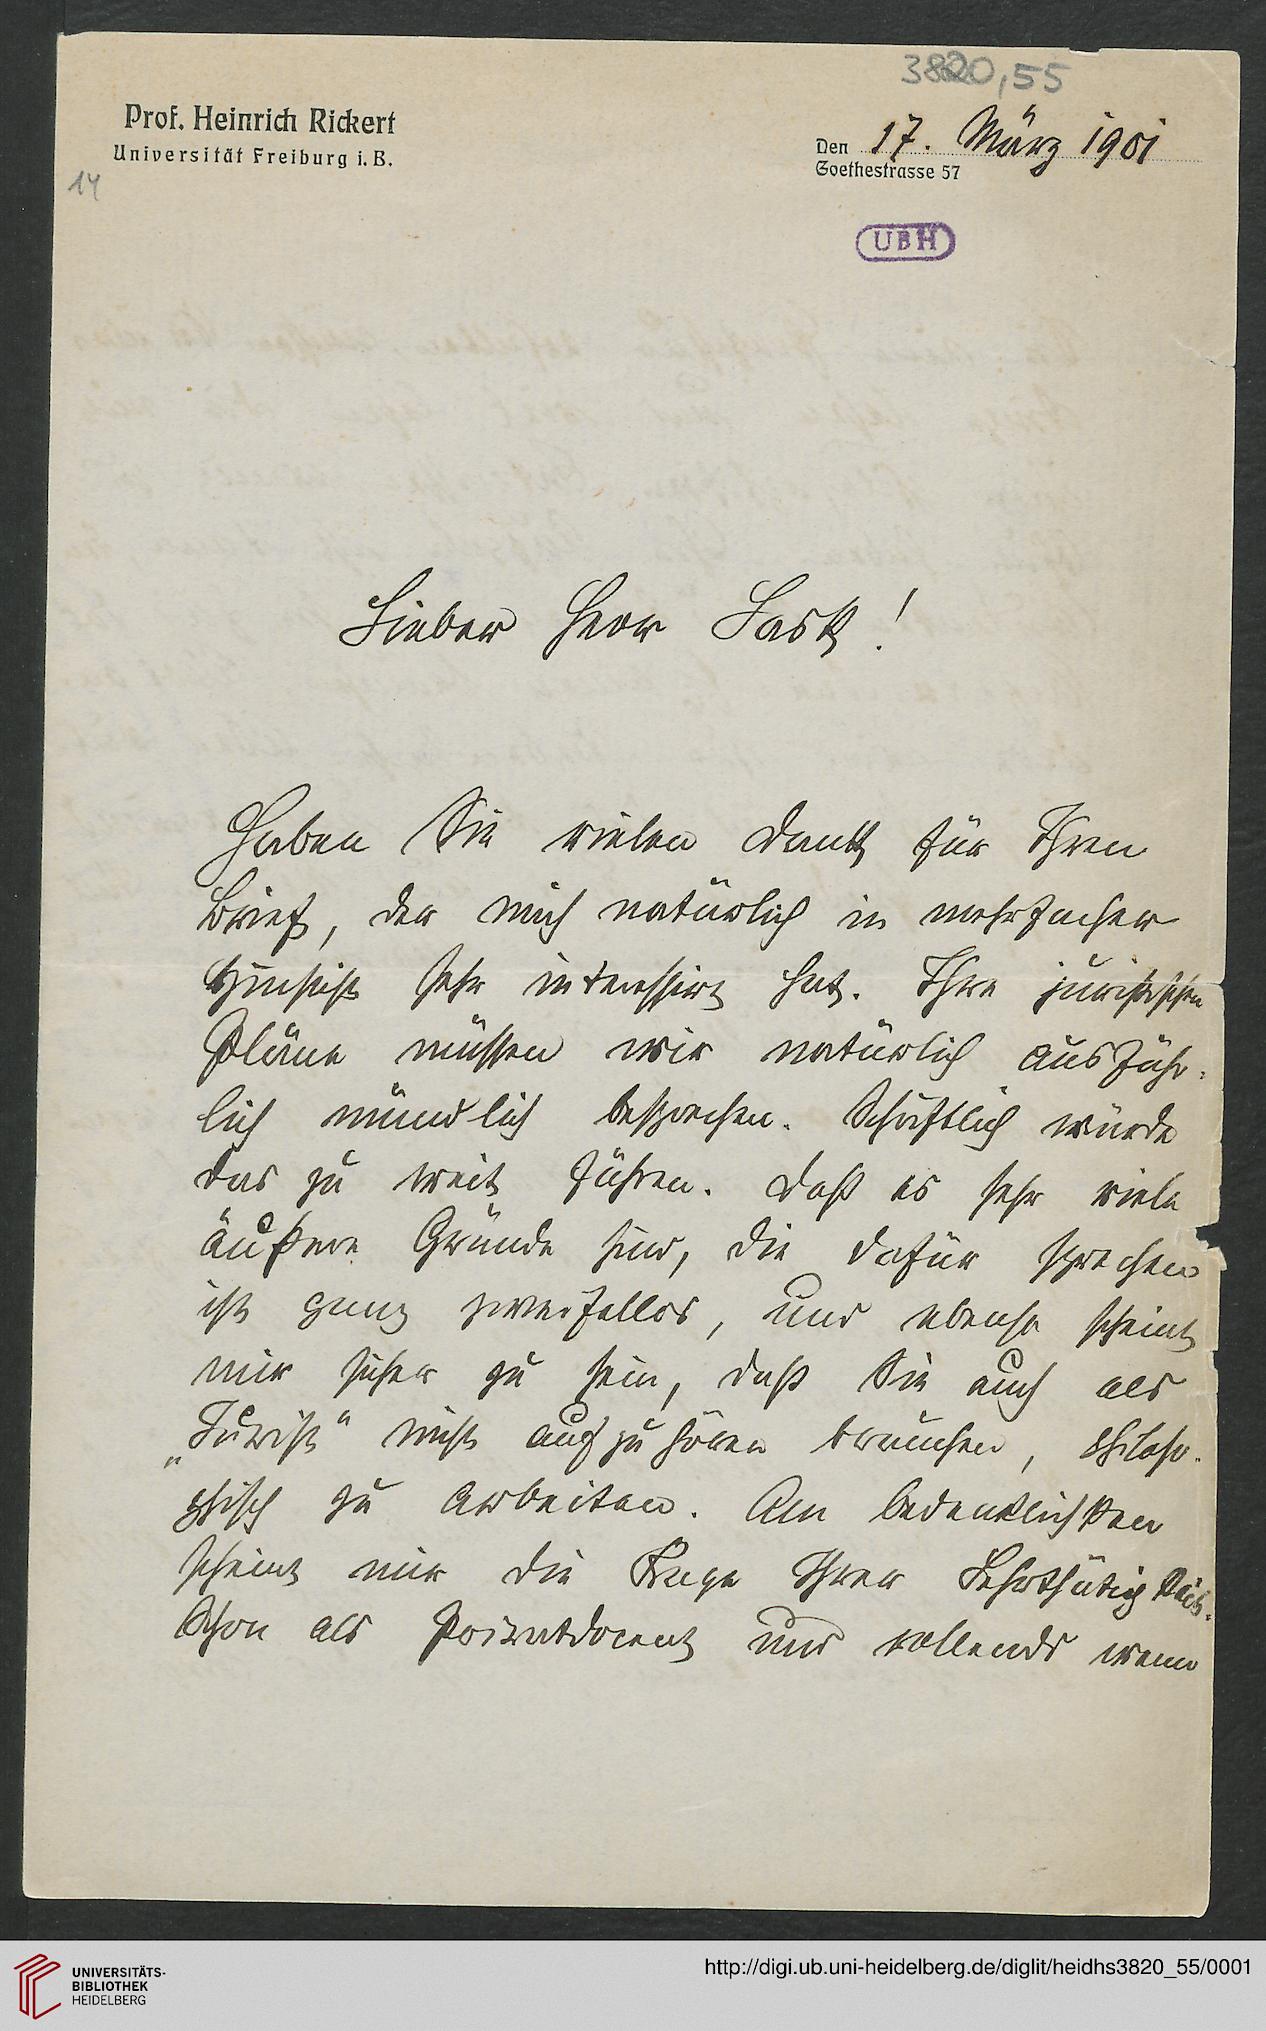 3820,55
Prof. Heinrich Rickert
Universität Freiburg i. B.
Den 17. März 1901
Goethestrasse 57
14
UBH
Lieber Herr Lask!
Haben Sie vielen Dank für Ihren
Brief, der mich natürlich in mehrfacher
Hinsicht sehr interessirt hat. Ihre juristischen
Pläne müssen wir natürlich ausführ-
lich mündlich besprechen. Schriftlich würde
das zu weit führen. Daß es sehr viele
äußere Gründe sind, die dafür sprechen
ist ganz zweifellos, und ebenso scheint
mir sicher zu sein, daß Sie auch als
„Jurist“ nicht aufzuhören brauchen, philoso-
phisch zu arbeiten. Am bedenklichsten
scheint mir die Frage Ihrer Lehrthätigkeit.
Schon als Privatdocent und vollends wenn
UNIVERSITÄTS-
BIBLIOTHEK
HEIDELBERG
http://digi.ub.uni-heidelberg.de/diglit/heidhs3820_55/0001